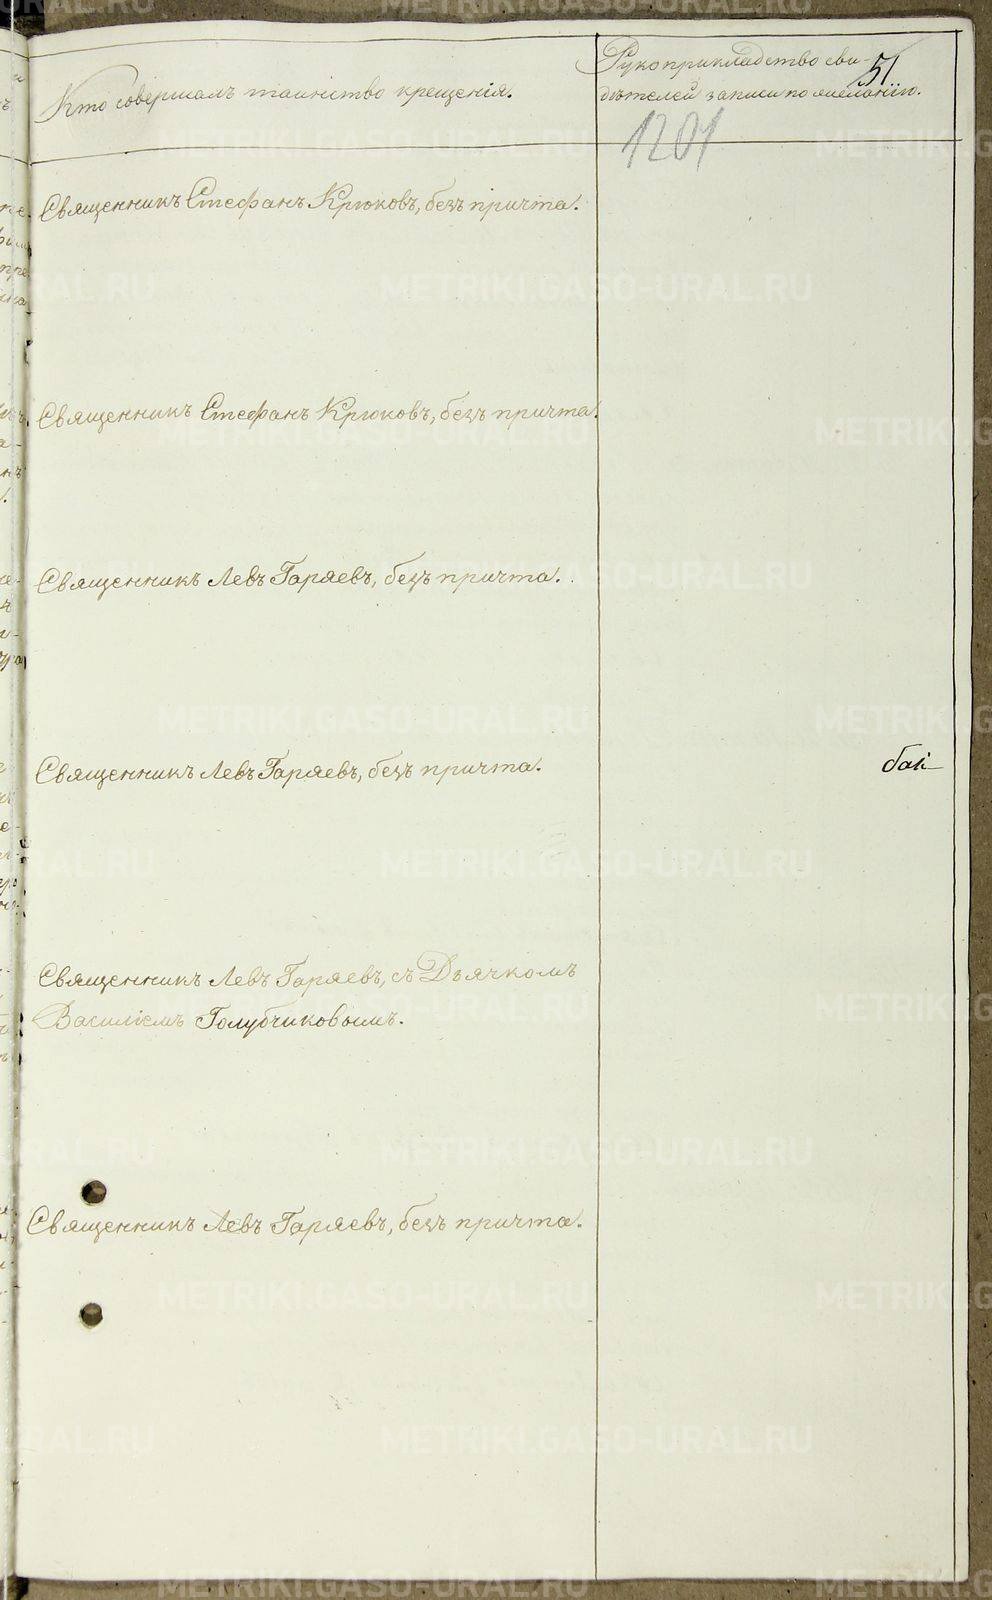 Кто совершалъ таинство крещенія.
Рукоприкладство сви-
дѣтелей записи по желанію.
51.
1201
Священникъ Стефанъ Крюковъ, безъ причта.
Священникъ Стефанъ Крюковъ, безъ причта.
Священникъ Левъ Гаряевъ, безъ причта.
Священникъ Левъ Гаряевъ, безъ причта.
бай-
Священникъ Левъ Гаряевъ, съ Дьячкомъ
Василіемъ Голубчиковымъ.
Священникъ Левъ Гаряевъ, безъ причта.
METRIKI.GASO-URAL.RU